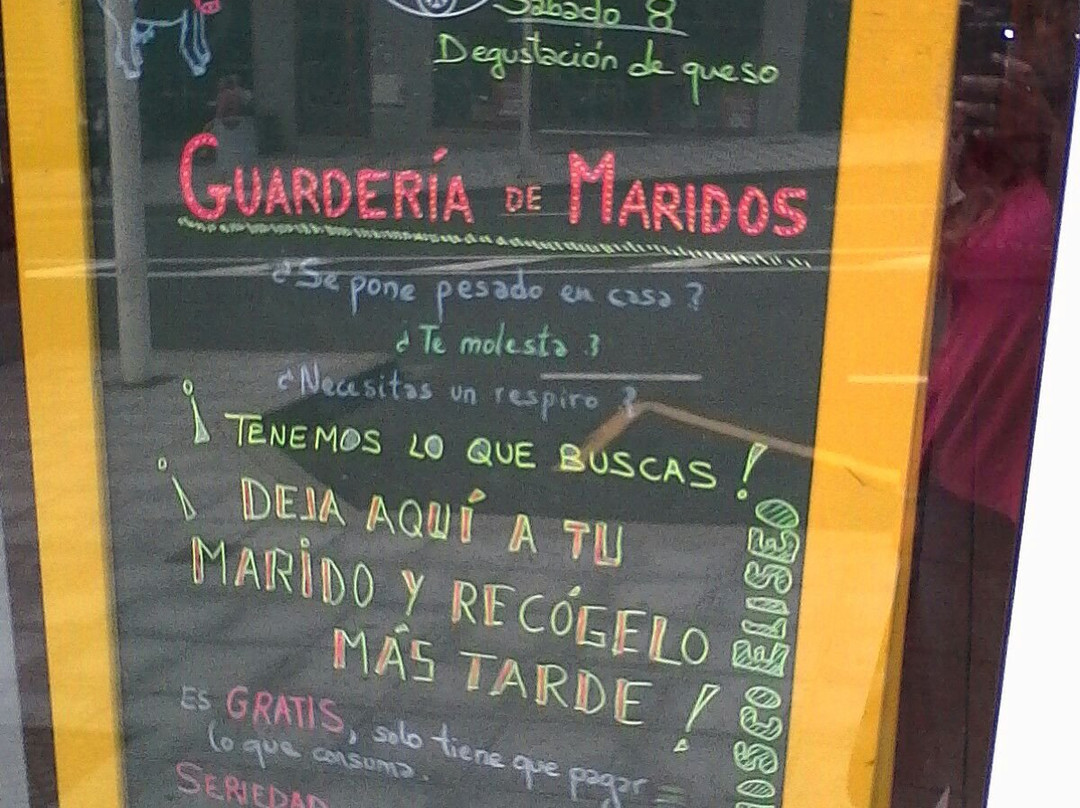 Sábado 8
Degustación de queso
GUARDERÍA DE MARIDOS
¿Se pone pesado en casa?
¿Te molesta?
¿Necesitas un respiro?
¡TENEMOS LO QUE BUSCAS!
¡DEJA AQUÍ A TU
MARIDO Y RECÓGELO
MÁS TARDE!
ES GRATIS, solo tiene que pagar
lo que consuma.
SERIEDAD
ELISEO